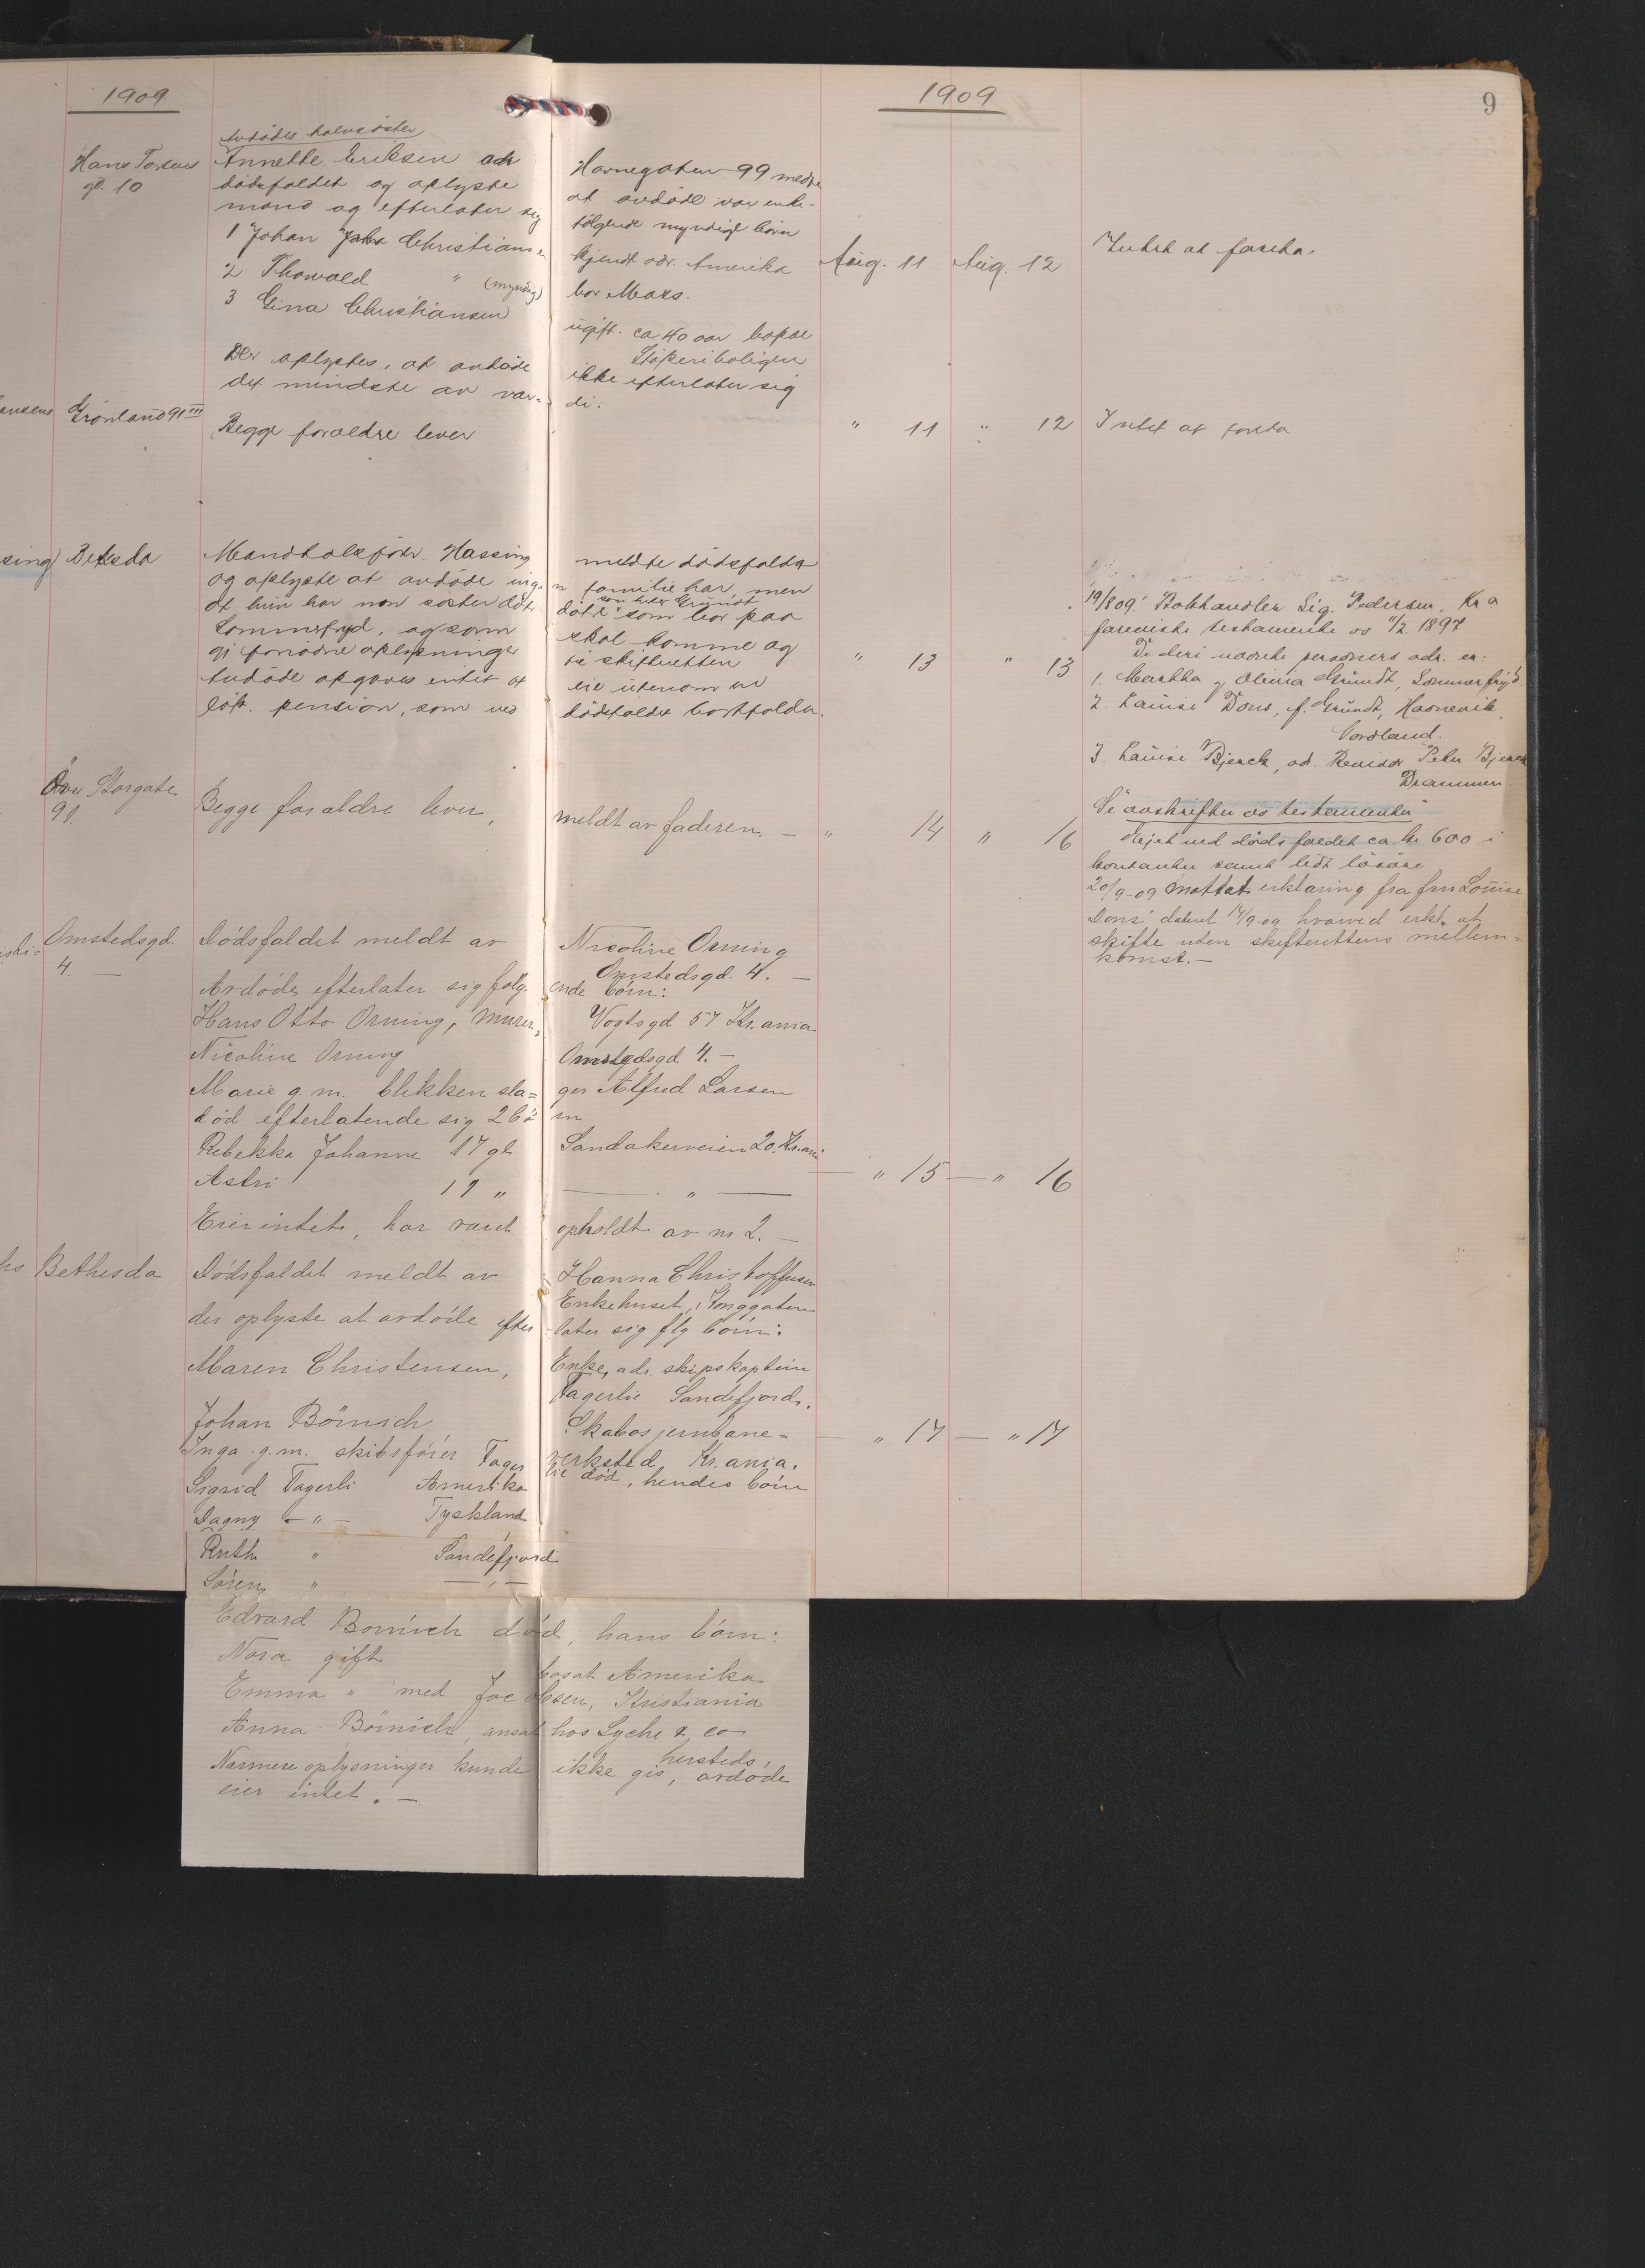 1909
1909
9
Avdødes halvsøster
Hans Tordsens
gt. 10
Annette Eriksen adr Havnegaten 99 meldte
dødsfaldet og oplyste at avdøde var enke-
mand og efterlater sig følgende myndige børn
1 Johan Christiansen kjendt adr. Amerika
2 Thorvald " (myndig) bor Moss.
3 Gina Christiansen ugift. ca 40 aar bopæl
Støperiboligen
Der oplystes, at avdøde ikke efterlater sig
det mindste av vær- di.
Aug. 11 Aug. 12 Intet at foreta.
ansens Grønland 91 III
Begge forældre lever
" 11 " 12 Intet at foreta
sing) Betesda
Mandtalsfører Hassing meldte dødsfaldet
og oplyste at avdøde ingen familie har, men
at hun har søster døtre som heter Grundt som bor paa
Sommerfryd, og som skal komme og
gi fornødne oplysninger til skifteretten
Avdøde opgaves intet at eie utenom en
pension, som ved dødsfaldet bortfaldr.
" 13 " 13
19/8 09. Bokhandler Sig. Pedersen, Kr a
foreviste testamente av 11/2 1897
De deri nævnte personers adr. er:
1. Martha og Olivia Grundt, Sommerfryd.
2. Louise Dons, f. Grundt, Havnevik,
Nordland.
3. Louise Bjerck, ad. Revisor Peter Bjerck
Drammen.
Se avskriften av testamentet
Eiet ved dødsfaldet ca kr 600 i
kontanter samt lidt løsøre
20/9-09 Mottat erklæring fra fru Louise
Dons datert 14/9-09 hvorved erkl. at
skifte uten skifterettens mellem-
komst. —
Øvre Storgate
91.
Begge forældre lever, meldt av faderen. — " 14 " 16
Omstedsgd.
4. —
Dødsfaldet meldt av Nicoline Orning
Omstedsgd. 4. —
Avdøde efterlater sig følg- ende børn:
Hans Otto Orning, murer, Vogtsgd 57 Kr.ania
Nicoline Orning Omstedsgd 4. —
Marie g. m. blikkensla= ger Alfred Larsen
død efterlatende sig 2 børn
Rebekka Johanne 17 gl Sandakerveien 20. Kr.ani
Astri 19 " — " —
— " 15 — " 16
Eier intet, har været opholdt av nr 2. —
hs Bethesda
Dødsfaldet meldt av Hanna Christoffersen
Enkehuset, Tonggaten
der oplyste at avdøde efter- later sig flg børn:
Maren Christensen, Enke, adr. skipskaptein
Fagerlie Sandefjord.
Johan Børnich Skabos jernbane=
verksted, Kr.ania.
— " 17 — " 17
Inga g.m. skibsfører Fager lie død, hendes børn
Sigrid Fagerli Amerika
Dagny — " — Tyskland
Ruth " Sandefjord
Søren " — " —
Edvard Børnich død, hans børn:
Nora gift bosat Amerika
Emma " med Jacobsen, Kristiania
Anna Børnich, ansat hos Lyche & co
hersteds,
Nærmere oplysninger kunde ikke gis, avdøde
eier intet. —